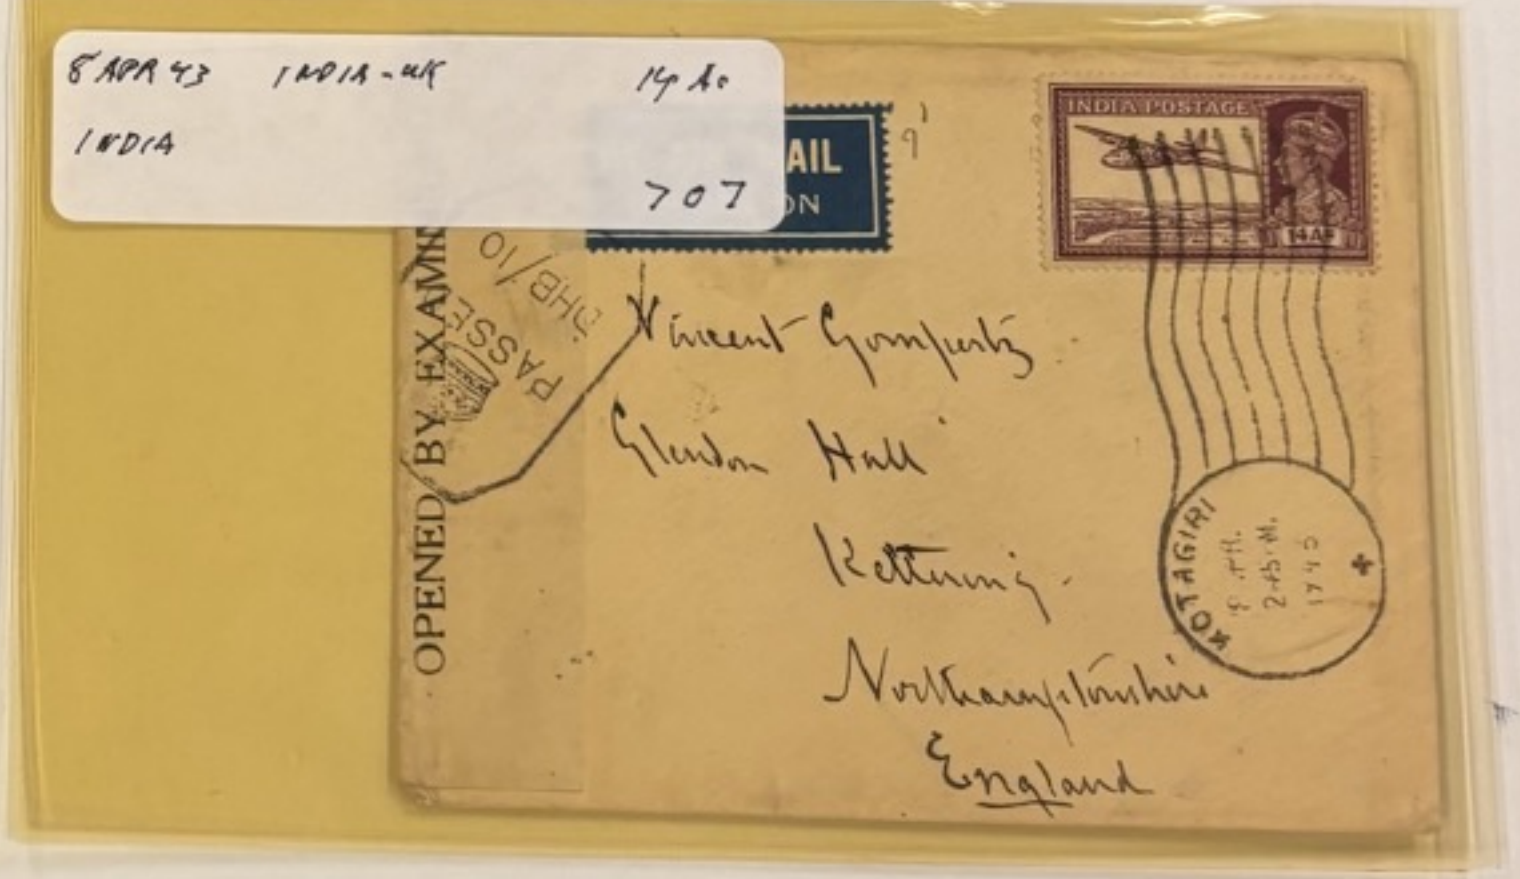 8 APR 43 INDIA - UK 14 As
INDIA
707
AIL
ON
9'
INDIA POSTAGE
14 As
OPENED BY EXAMIN
PASSE
DHB/10
Vincent Gompertz
Glendon Hall
Kettering.
Northamptonshire
England
KOTAGIRI
2-45 M.